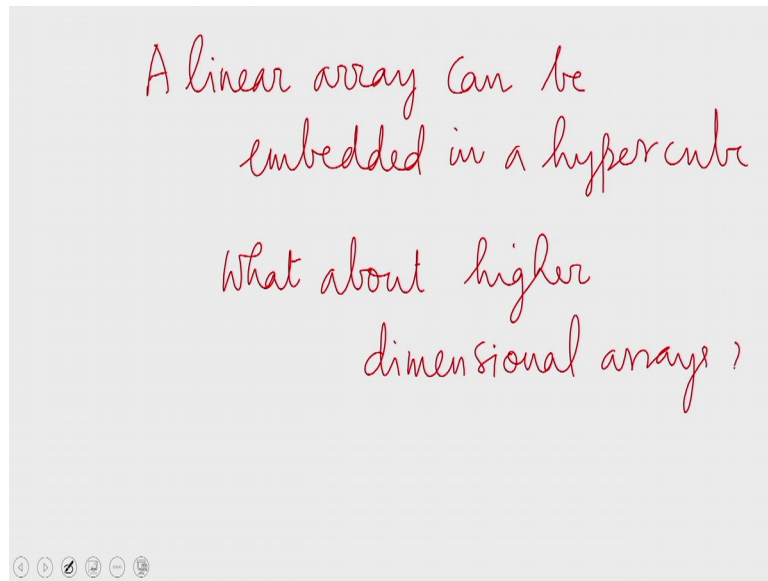 A linear array can be
embedded in a hypercube
What about higher
dimensional arrays ?